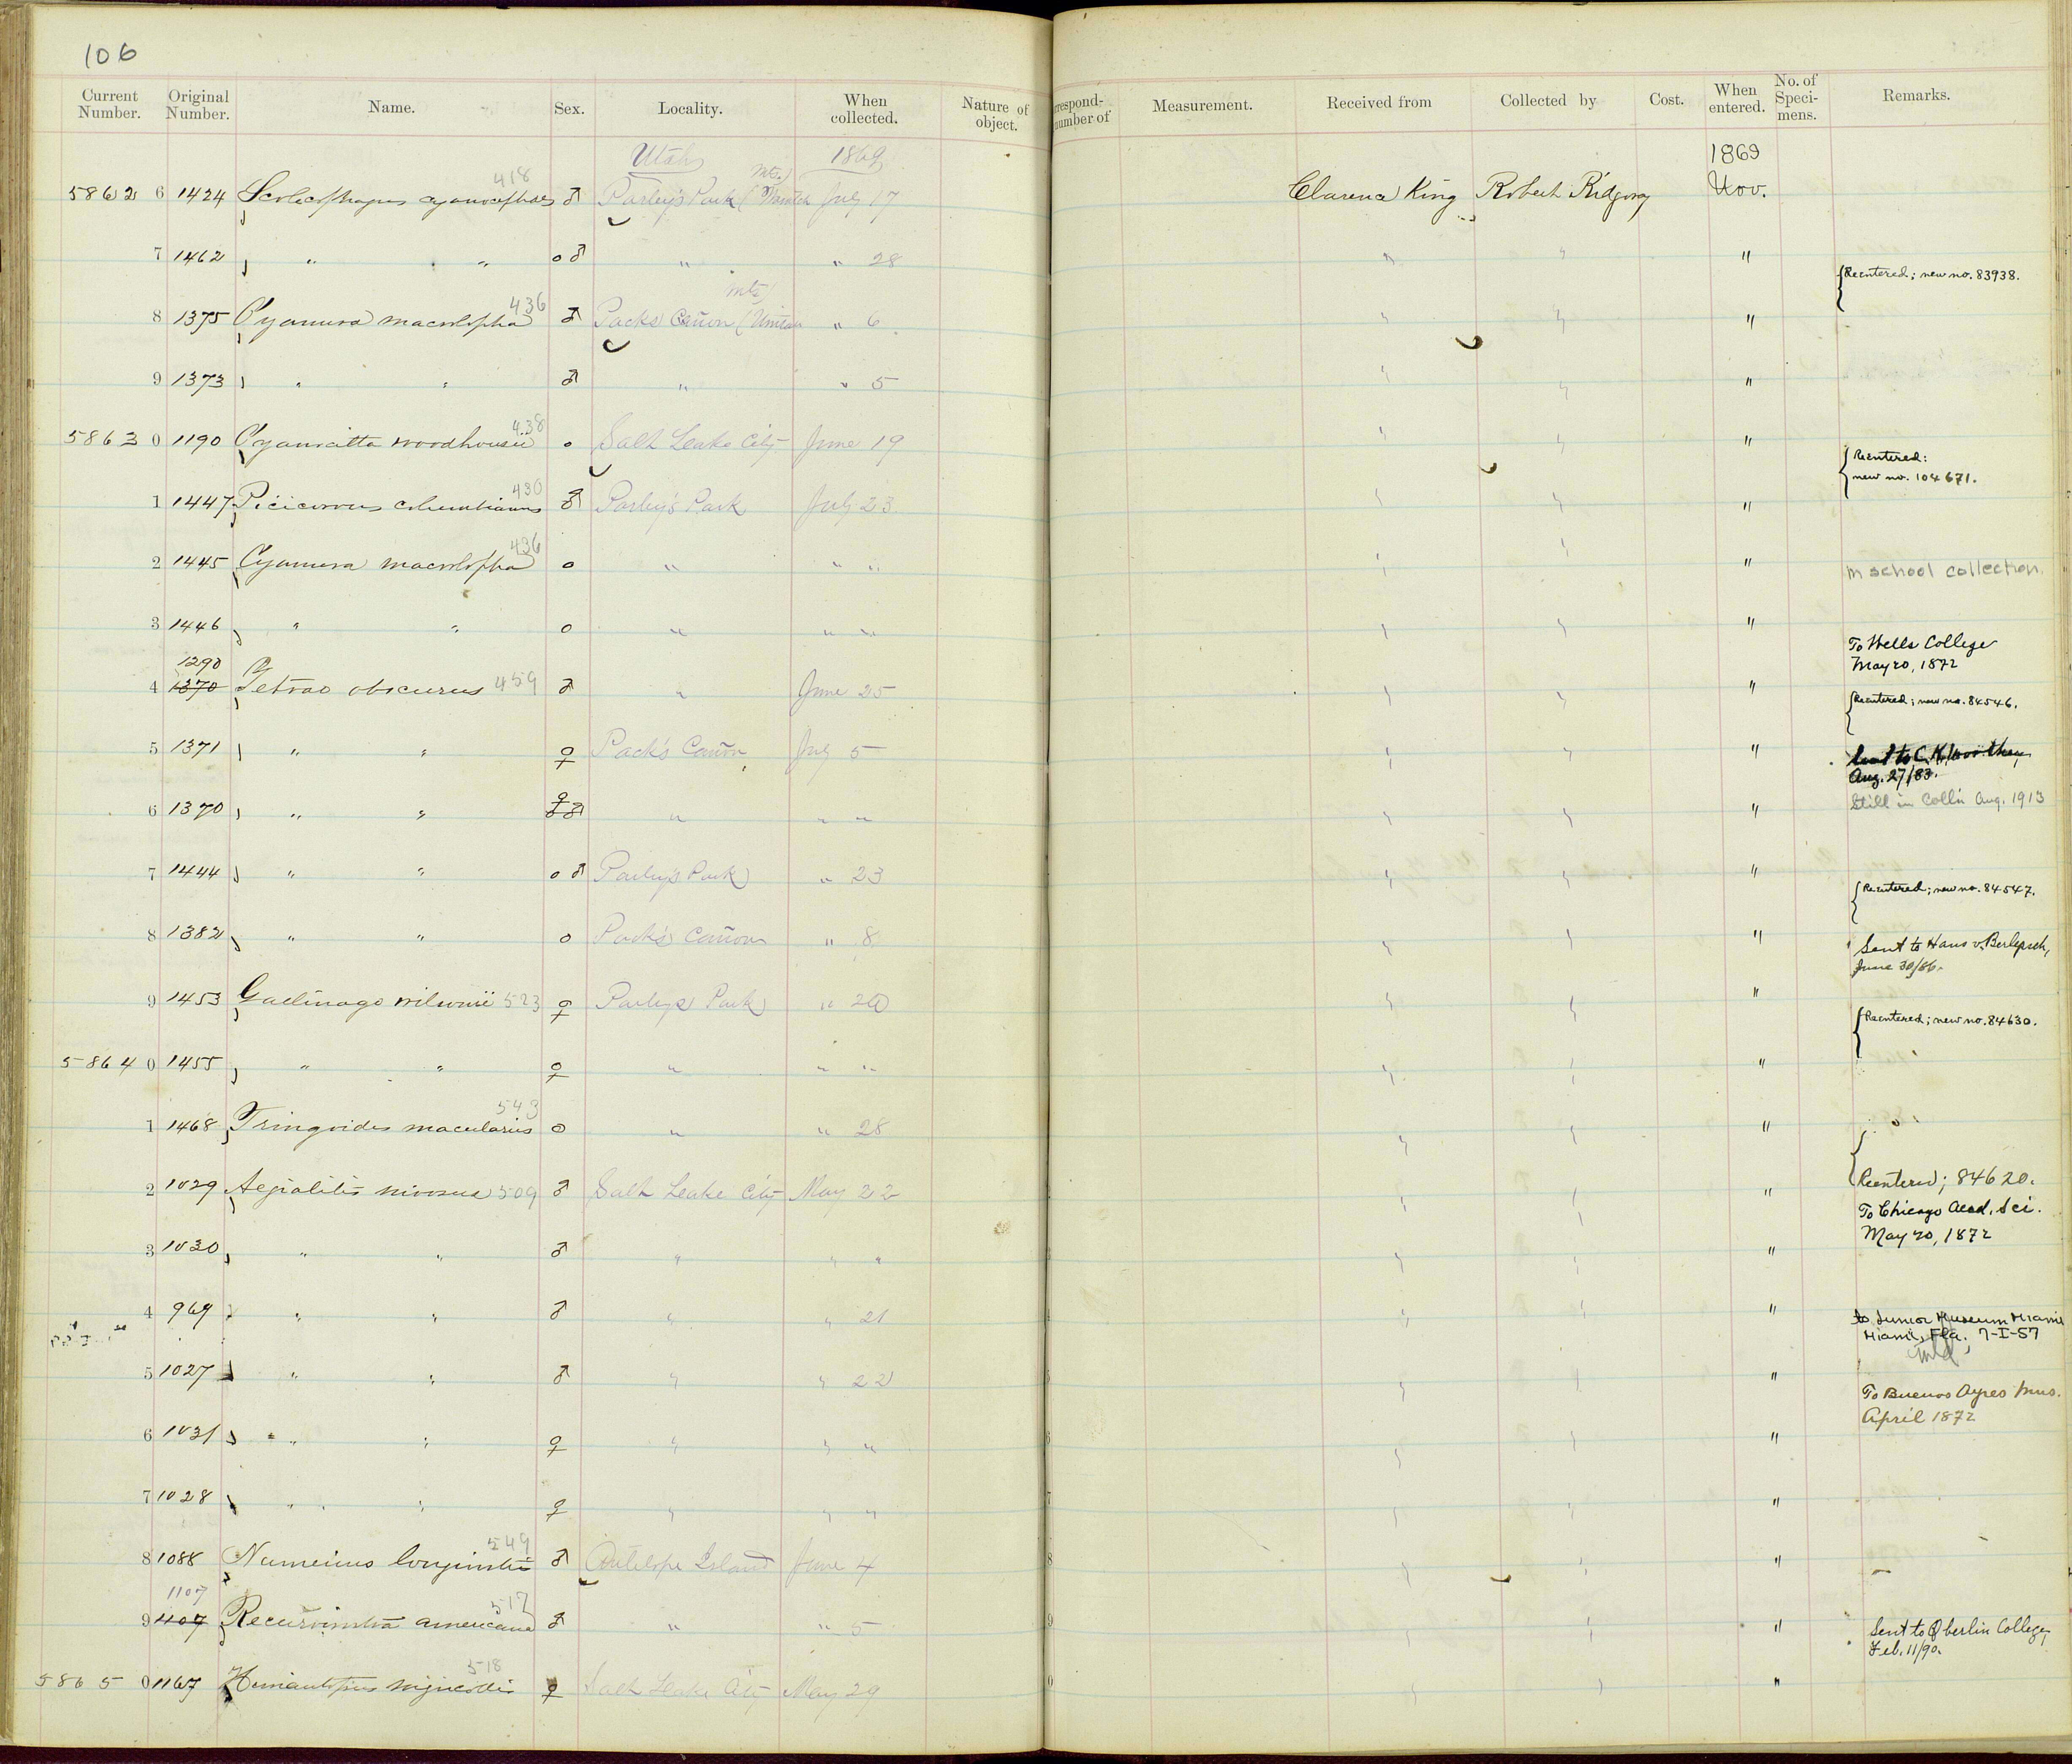 106
Current Number. Original Number. Name. Sex. Locality. When collected. Nature of object. respond- number of Measurement. Received from Collected by Cost. When entered. No. of Speci- mens. Remarks.
Utah 1869 1869
418 Mts.)
5862 6 1424 Scolecophagus cyanocephalus ♂ Parley's Park (Wasatch July 17 Clarence King Robert Ridgway Nov.
7 1462 " " o ♂ " " 28 " " "
{Reentered; new no. 83938.
436 mts)
8 1375 Cyanura macrolopha ♂ Packs Cañon (Uintah " 6 " " "
9 1373 " " ♂ " " 5 " " "
438
5863 0 1190 Cyanocitta woodhousii o Salt Lake City June 19 " " "
{Reentered:
new no. 104671.
430
1 1447 Picicorvus columbianus ♂ Parley's Park July 23 " " "
436
2 1445 Cyanura macrolopha o " " " " " " in school collection.
3 1446 " " o " " " " " "
To Wells College
May 20, 1872
1290
4 1370 Tetrao obscurus 459 ♂ " June 25 " " "
{Reentered; new no. 84546.
5 1371 " " ♀ Pack's Cañon, July 5 " " " Sent to C. K. Worthen,
Aug. 27/83.
Still in Coll'n Aug. 1913
6 1370 " " ♀ ♂ " " " " " "
7 1444 " " o ♂ Parley's Park " 23 " " "
{Reentered; new no. 84547.
8 1382 " " o Pack's Cañon " 8 " " " Sent to Hans v. Berlepsch,
June 30/86.
9 1453 Gallinago wilsonii 523 ♀ Parleys Park " " " "
{Reentered; new no. 84630.
5864 0 1455 " " ♀ " " " " " "
543
1 1468 Tringoides macularius o " " 28 " " "
2 1029 Aegialitis nivosus 509 ♂ Salt Lake City May 22 " " " {Reentered; 84620.
To Chicago Acad. Sci.
May 20, 1872
3 1030 " " ♂ " " " " " "
4 969 " " ♂ " " 21 " " " to Junior Museum Miami
Miami, Fla. 7-I-57
5 1027 " " ♂ " " 22 " " "
To Buenos Ayres Mus.
April 1872
6 1031 " " ♀ " " " " " "
7 1028 " " ♀ " " " " " "
549
8 1088 Numenius longirostris ♂ Antelope Island June 4 " " "
1107 517
9 1107 Recurvirostra americana ♂ " " 5 " " " Sent to Oberlin College,
Feb. 11/90.
518
5865 0 1167 Himantopus nigricollis ♀ Salt Lake City May 29 " " "